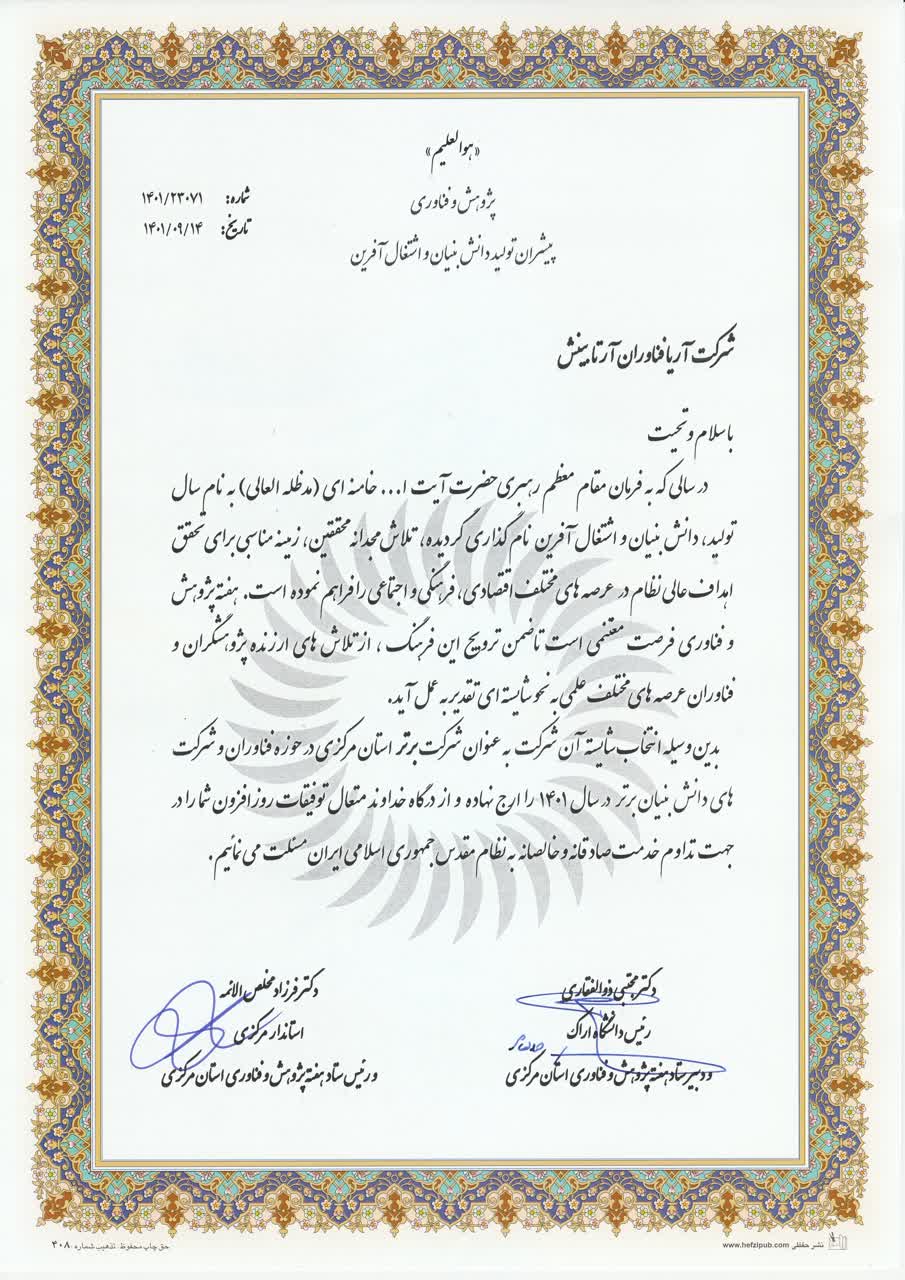 «هوالعلیم»
پژوهش و فناوری
پیشران تولید دانش بنیان و اشتغال آفرین
شماره: ۱۴۰۱/۲۳۰۷۱
تاریخ: ۱۴۰۱/۰۹/۱۴
شرکت آریا فناوران آرتا بینش
با سلام و تحیت
در سالی که به فرمان مقام معظم رهبری حضرت آیت ا... خامنه ای (مدظله العالی) به نام سال
تولید، دانش بنیان و اشتغال آفرین نام گذاری گردیده، تلاش مجدانه محققین، زمینه مناسبی برای تحقق
اهداف عالی نظام در عرصه های مختلف اقتصادی، فرهنگی و اجتماعی را فراهم نموده است. هفته پژوهش
و فناوری فرصت مغتنمی است تا ضمن ترویج این فرهنگ ، از تلاش های ارزنده پژوهشگران و
فناوران عرصه های مختلف علمی به نحو شایسته ای تقدیر به عمل آید.
بدین وسیله انتخاب شایسته آن شرکت به عنوان شرکت برتر استان مرکزی در حوزه فناوران و شرکت
های دانش بنیان برتر در سال ۱۴۰۱ را ارج نهاده و از درگاه خداوند متعال توفیقات روز افزون شما را در
جهت تداوم خدمت صادقانه و خالصانه به نظام مقدس جمهوری اسلامی ایران مسئلت می نمائیم.
دکتر مجتبی ذوالفقاری
رئیس دانشگاه اراک
و دبیر ستاد هفته پژوهش و فناوری استان مرکزی
دکتر فرزاد مخلص الائمه
استاندار مرکزی
و رئیس ستاد هفته پژوهش و فناوری استان مرکزی
نشر حفظی www.hefzipub.com
حق چاپ محفوظ. تذهیب شماره ۴۰۸